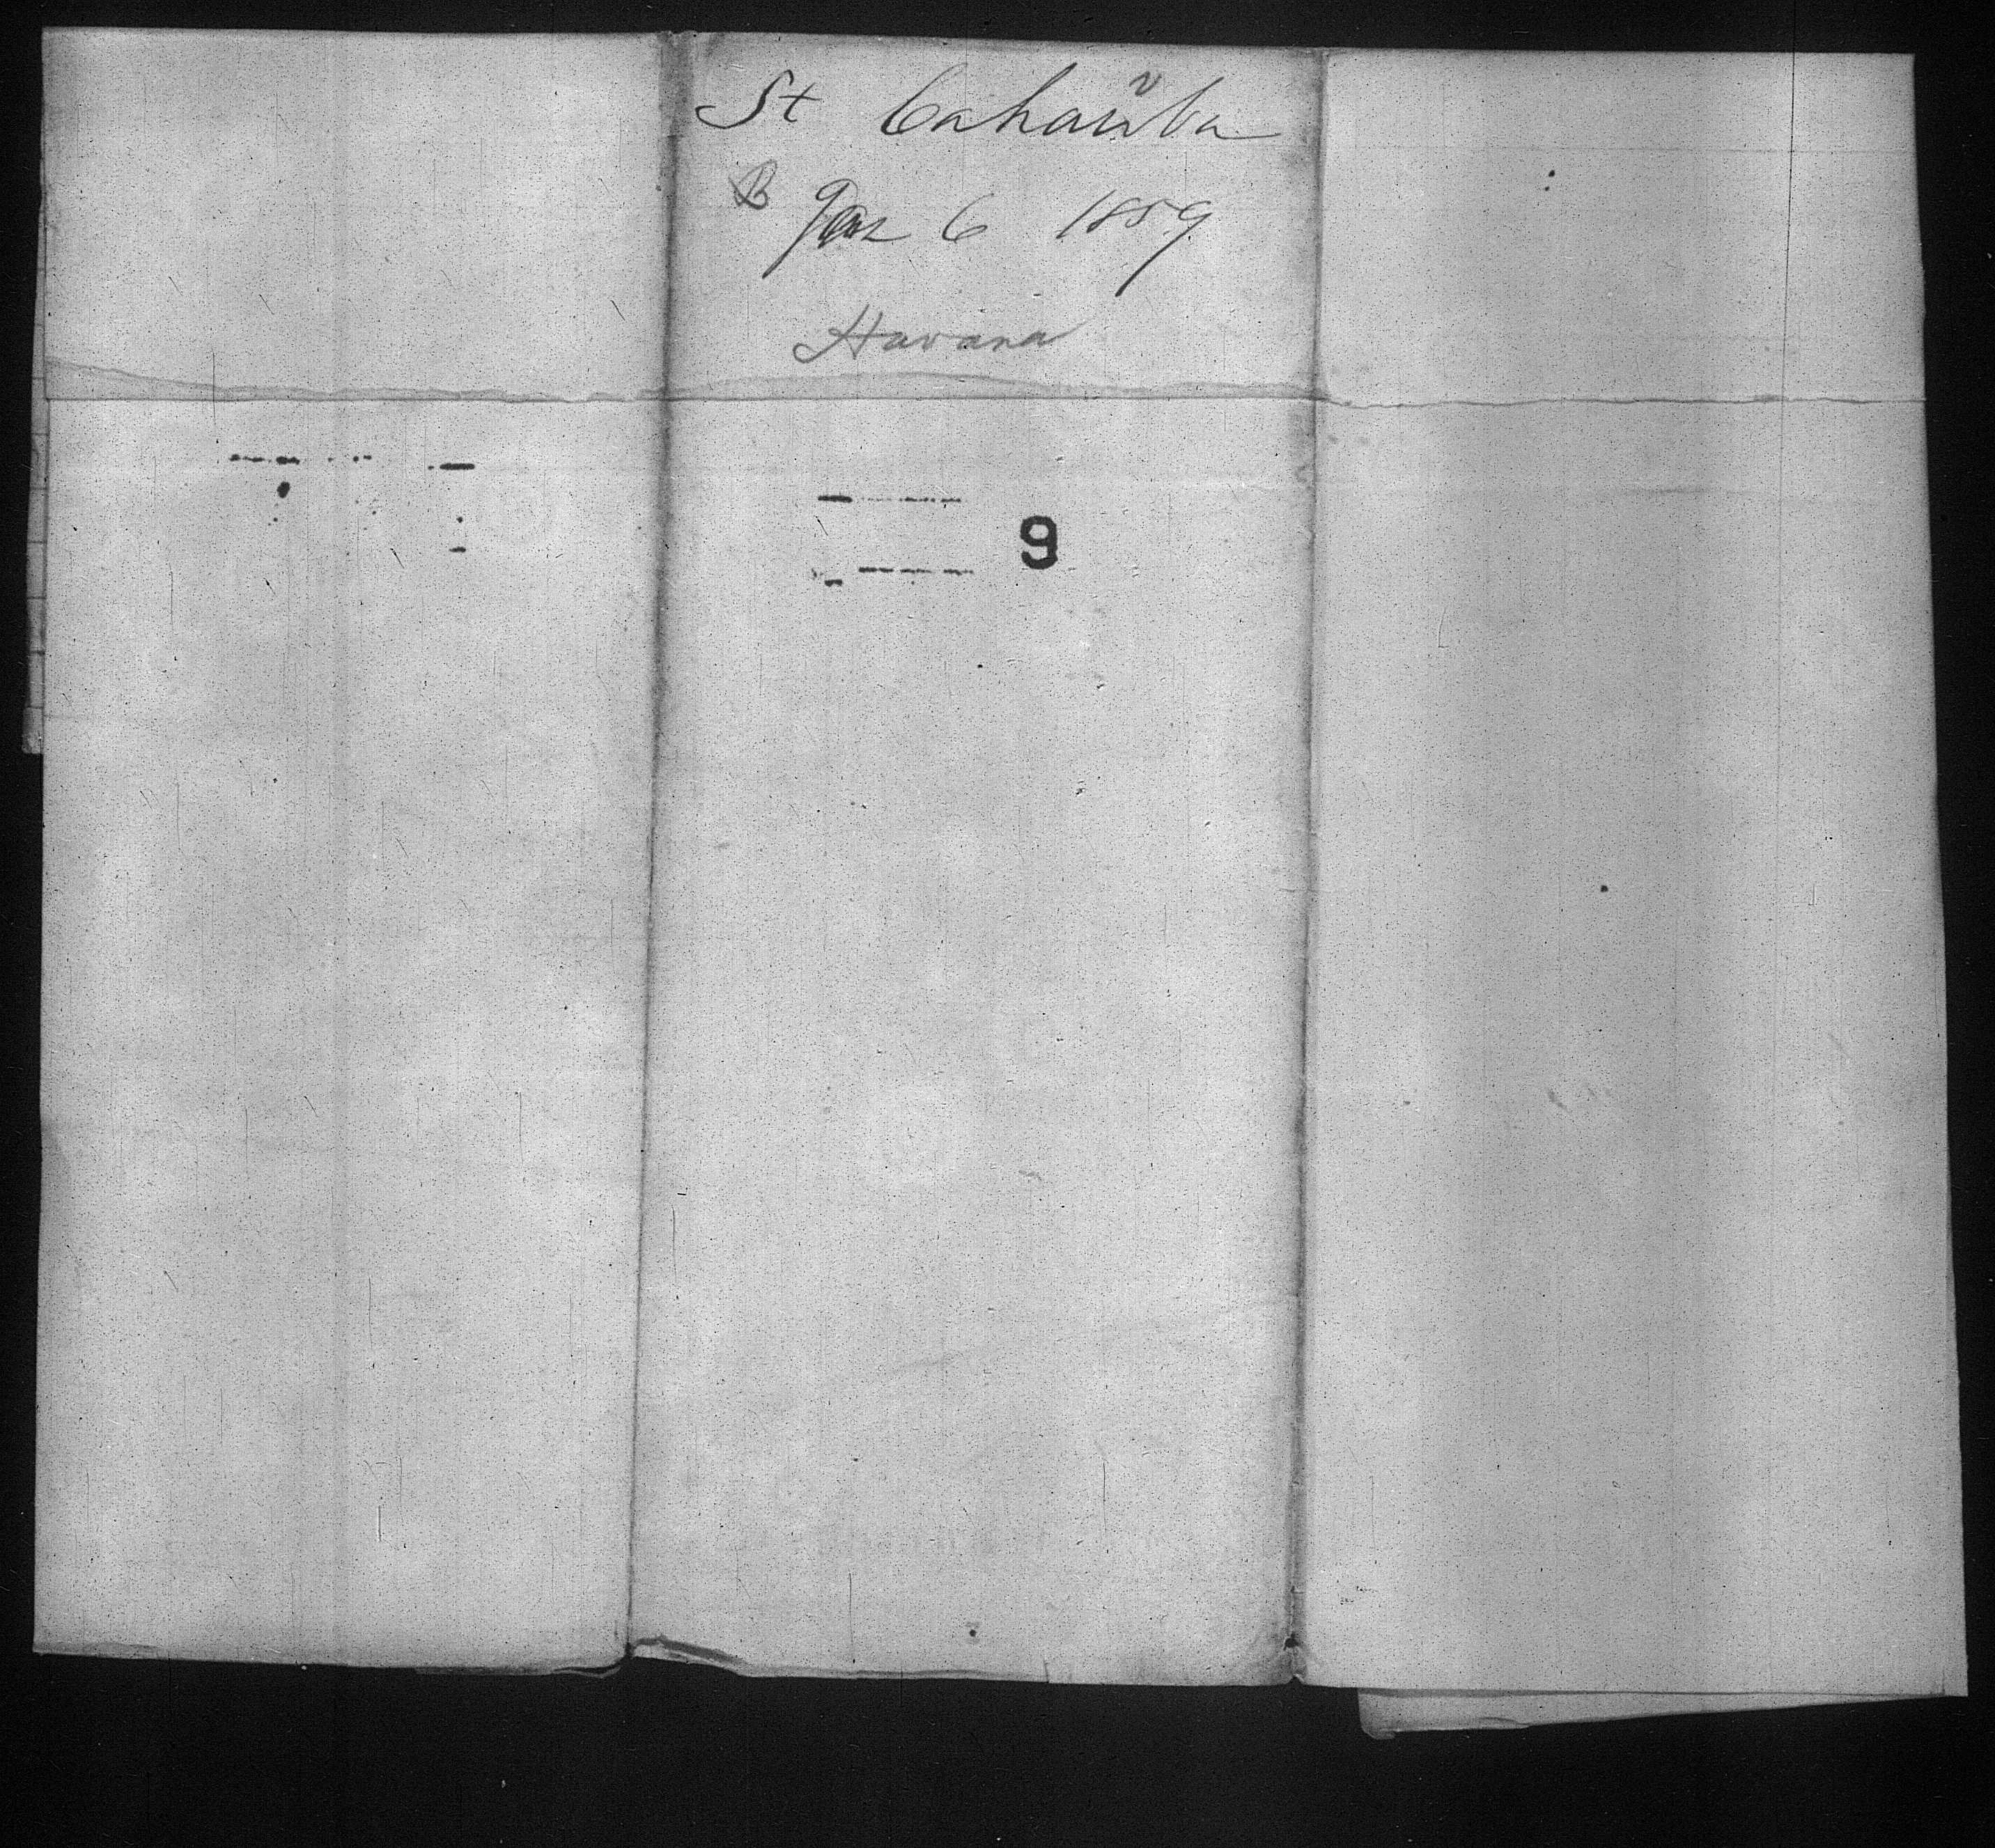 St Cahawba
B Jan 6 1859
Havana
9